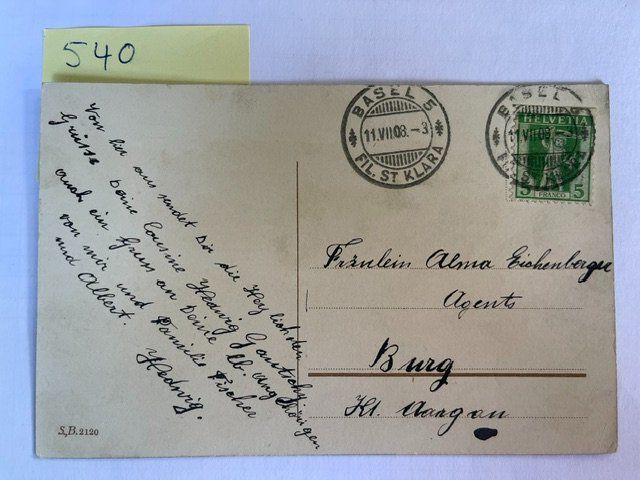 540
BASEL 5
11.VII.08.-3
FIL. ST. KLARA
BASEL 5
11.VII.08.-
FIL. ST. KLARA
HELVETIA
5 FRANCO 5
Von hier aus sendet Dir die Herzlichsten
Grüsse Deine Cousine Hedwig Gautschy
auch ein Gruss an Deine lb. angehörigen
von mir und Familie Fischer
und Albert.
Hedwig.
Fräulein Alma Eichenberger
Agents
Burg
Kt. Aargau
S.B. 2120